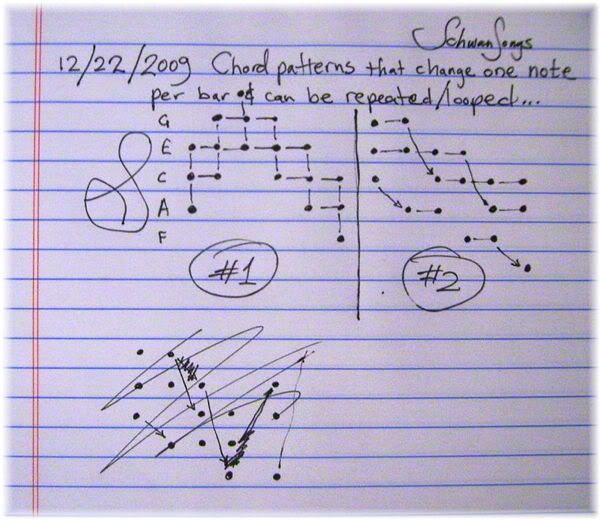 SchwanSongs
12/22/2009 Chord patterns that change one note
per bar & can be repeated/looped...
G
E
C
A
F
#1
#2